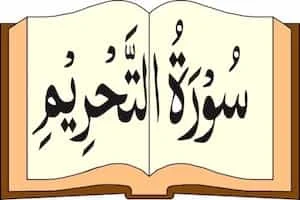 سُوْرَةُ التَّحْرِيْمِ